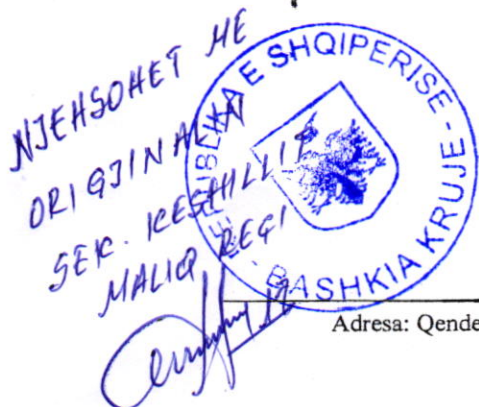 NJEHSOHET ME
ORIGJINALIN
SEK. KESHILLIT
MALIQ REÇI
REPUBLIKA E SHQIPERISE - BASHKIA KRUJE -
Adresa: Qende